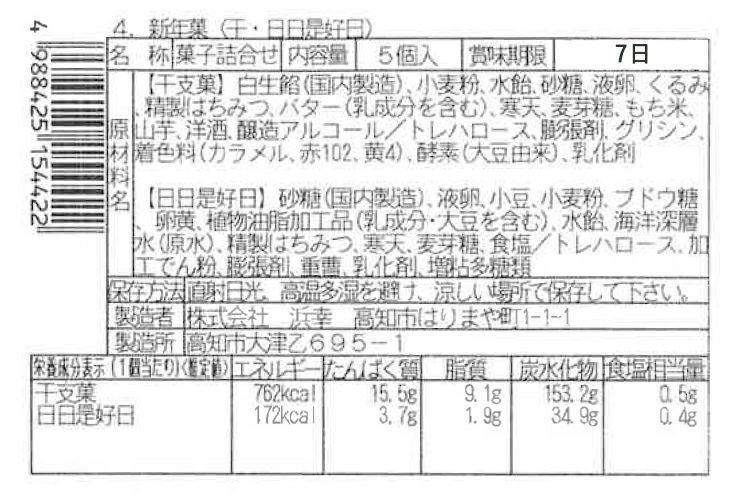 4. 新年菓（干・日日是好日）
名 称 菓子詰合せ 内容量 5個入 賞味期限 7日
原材料名
【干支菓】白生餡(国内製造)、小麦粉、水飴、砂糖、液卵、くるみ
、精製はちみつ、バター(乳成分を含む)、寒天、麦芽糖、もち米、
山芋、洋酒、醸造アルコール／トレハロース、膨張剤、グリシン、
着色料(カラメル、赤102、黄4)、酵素(大豆由来)、乳化剤
【日日是好日】砂糖(国内製造)、液卵、小豆、小麦粉、ブドウ糖
、卵黄、植物油脂加工品(乳成分・大豆を含む)、水飴、海洋深層
水(原水)、精製はちみつ、寒天、麦芽糖、食塩／トレハロース、加
工でん粉、膨張剤、重曹、乳化剤、増粘多糖類
保存方法 直射日光、高温多湿を避け、涼しい場所で保存して下さい。
製造者 株式会社 浜幸 高知市はりまや町1-1-1
製造所 高知市大津乙695－1
栄養成分表示(1個当たり)(推定値) エネルギー たんぱく質 脂質 炭水化物 食塩相当量
干支菓 762kcal 15.5g 9.1g 153.2g 0.5g
日日是好日 172kcal 3.7g 1.9g 34.9g 0.4g
4 988425 154422